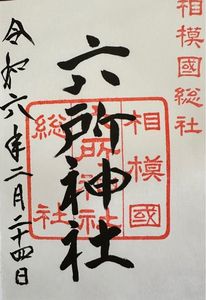 相模國総社
六所神社
相模國
六所神社
総社
令和六年二月二十四日